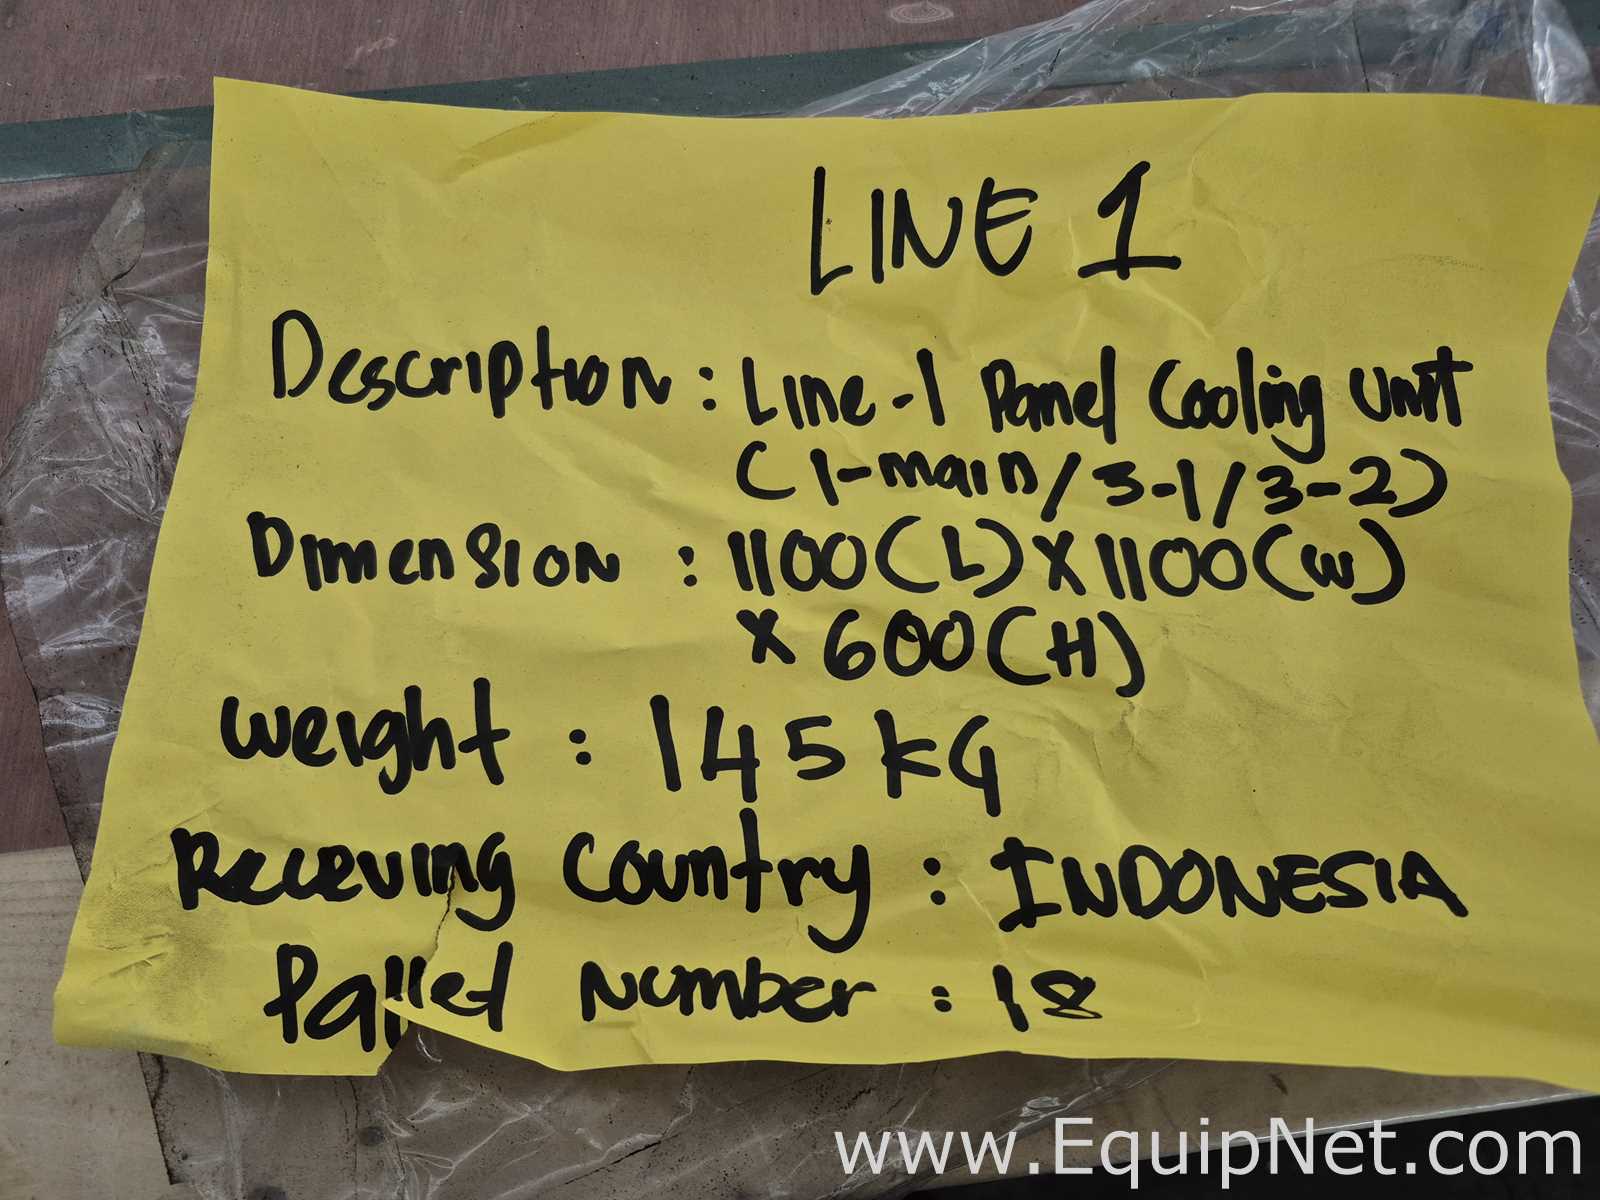 LINE 1
Description : Line-1 Panel Cooling Unit
(1-main/3-1/3-2)
Dimension : 1100(L)X1100(W)
X 600(H)
Weight : 145KG
Receving Country : INDONESIA
Pallet Number : 18
www.EquipNet.com